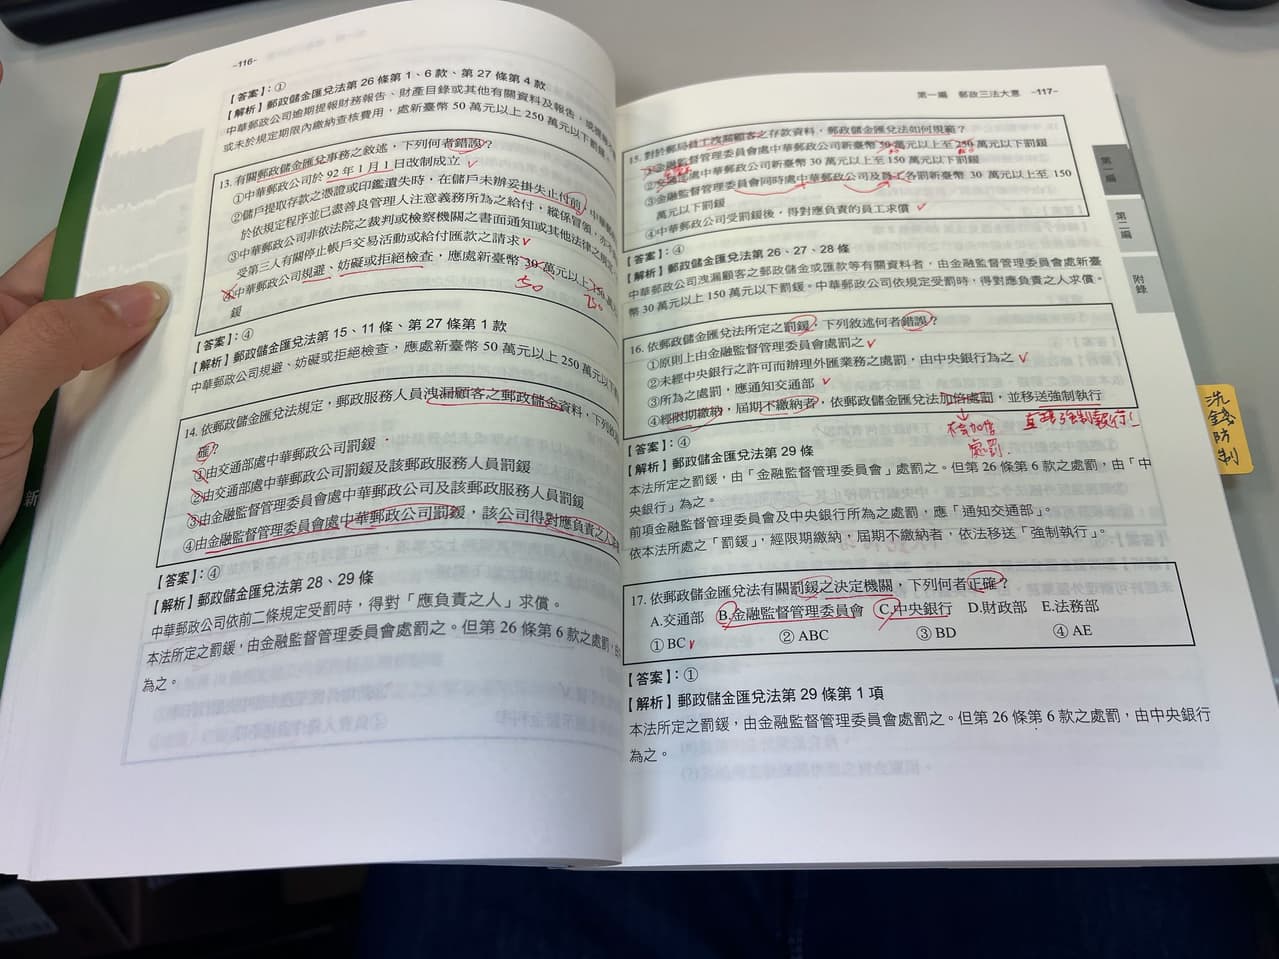 -116-
【答案】：①
【解析】郵政儲金匯兌法第 26 條第 1、6 款、第 27 條第 4 款
中華郵政公司逾期提報財務報告、財產目錄或其他有關資料及報告，或
或未於規定期限內繳納查核費用，處新臺幣 50 萬元以上 250 萬元以下罰鍰。
13. 有關郵政儲金匯兌事務之敘述，下列何者錯誤？
①中華郵政公司於 92 年 1 月 1 日改制成立
②儲戶提取存款之憑證或印鑑遺失時，在儲戶未辦妥掛失止付前，中華
於依規定程序並已盡善良管理人注意義務所為之給付，縱係冒領，亦
③中華郵政公司非依法院之裁判或檢察機關之書面通知或其他法律之規定，
受第三人有關停止帳戶交易活動或給付匯款之請求
④中華郵政公司規避、妨礙或拒絕檢查，應處新臺幣 30 萬元以上 150 萬
鍰
50 250
【答案】：④
【解析】郵政儲金匯兌法第 15、11 條、第 27 條第 1 款
中華郵政公司規避、妨礙或拒絕檢查，應處新臺幣 50 萬元以上 250 萬元以下
14. 依郵政儲金匯兌法規定，郵政服務人員洩漏顧客之郵政儲金資料，下列
確？
①由交通部處中華郵政公司罰鍰
②由交通部處中華郵政公司罰鍰及該郵政服務人員罰鍰
③由金融監督管理委員會處中華郵政公司及該郵政服務人員罰鍰
④由金融監督管理委員會處中華郵政公司罰鍰，該公司得對應負責之人
【答案】：④
【解析】郵政儲金匯兌法第 28、29 條
中華郵政公司依前二條規定受罰時，得對「應負責之人」求償。
本法所定之罰鍰，由金融監督管理委員會處罰之。但第 26 條第 6 款之處罰，
為之。
第一編 郵政三法大意 -117-
15. 對於郵局員工洩漏顧客之存款資料，郵政儲金匯兌法如何規範？
①金融監督管理委員會處中華郵政公司新臺幣 50 萬元以上至 250 萬元以下罰鍰
②交通部處中華郵政公司新臺幣 30 萬元以上至 150 萬元以下罰鍰
③金融監督管理委員會同時處中華郵政公司及員工各罰新臺幣 30 萬元以上至 150
萬元以下罰鍰
④中華郵政公司受罰鍰後，得對應負責的員工求償
【答案】：④
【解析】郵政儲金匯兌法第 26、27、28 條
中華郵政公司洩漏顧客之郵政儲金或匯款等有關資料者，由金融監督管理委員會處新臺
幣 30 萬元以上 150 萬元以下罰鍰。中華郵政公司依規定受罰時，得對應負責之人求償。
16. 依郵政儲金匯兌法所定之罰鍰，下列敘述何者錯誤？
①原則上由金融監督管理委員會處罰之
②未經中央銀行之許可而辦理外匯業務之處罰，由中央銀行為之
③所為之處罰，應通知交通部
④經限期繳納，屆期不繳納者，依郵政儲金匯兌法加倍處罰，並移送強制執行
不會加倍
處罰.
直接強制執行!
【答案】：④
【解析】郵政儲金匯兌法第 29 條
本法所定之罰鍰，由「金融監督管理委員會」處罰之。但第 26 條第 6 款之處罰，由「中
央銀行」為之。
前項金融監督管理委員會及中央銀行所為之處罰，應「通知交通部」。
依本法所處之「罰鍰」，經限期繳納，屆期不繳納者，依法移送「強制執行」。
17. 依郵政儲金匯兌法有關罰鍰之決定機關，下列何者正確？
A.交通部 B.金融監督管理委員會 C.中央銀行 D.財政部 E.法務部
①BC ②ABC ③BD ④AE
【答案】：①
【解析】郵政儲金匯兌法第 29 條第 1 項
本法所定之罰鍰，由金融監督管理委員會處罰之。但第 26 條第 6 款之處罰，由中央銀行
為之。
第一編
第二編
附錄
洗錢防制
新